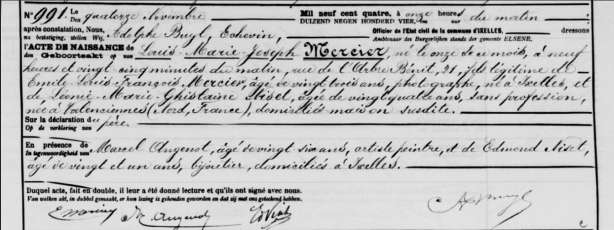 No. 991. Le quatorze Novembre Mil neuf cent quatre, à onze heures du matin
Den DUIZEND NEGEN HONDERD VIER, om ure
après constatation, Nous, Adolphe Buyl, Echevin, Officier de l'État civil de la commune d'IXELLES. dressons
na bestatiging, stellen Wij, Ambtenaar des Burgerlijken stands der gemeente ELSENE.
l'ACTE DE NAISSANCE de Louis-Marie-Joseph Mercier, né le onze de ce mois, à neuf
de Geboorteakt op van
heures et vingt cinq minutes du matin, rue de l'Arbre Bénit, 21, fils légitime de
Emile-Louis-François Mercier, âgé de vingt trois ans, photographe, né à Ixelles, et
de Marie-Ghislaine âgée de vingt quatre ans, sans profession,
née à Valenciennes (Nord, France), domiciliés maison susdite.
Sur la déclaration de père.
Op de verklaring van
En présence de Marcel Augenot, âgé de vingt six ans, artiste peintre, et de Edmond
In tegenwoordigheid van
âgé de vingt et un ans, bijoutier, domiciliés à Ixelles.
Duquel acte, fait en double, il leur a été donné lecture et qu'ils ont signé avec nous.
Van welken akt, in dubbel gemaakt, er hun lezing is gehouden geworden en dat zij met ons geteekend hebben.